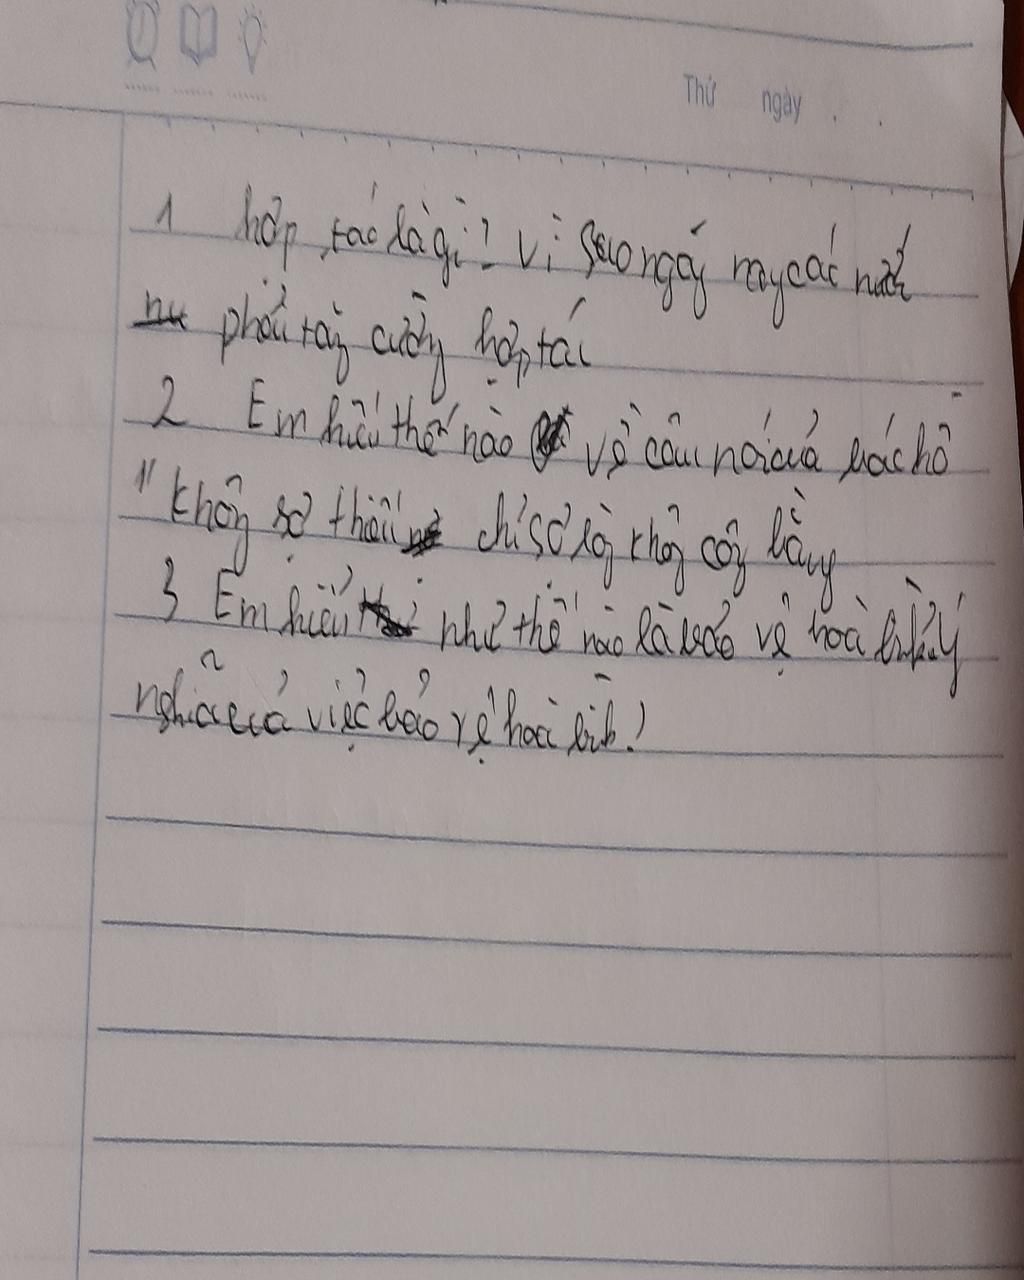 Thứ ngày . .
1 hợp tác là gì? vì sao ngày nay các nước
phải tăng cường hợp tác
2 Em hiểu thế nào về câu nói của Bác hồ
"không sợ thiếu chỉ sợ không công bằng
3 Em hiểu như thế nào là bảo vệ hoà bình ý
nghĩa của việc bảo vệ hoà bình?